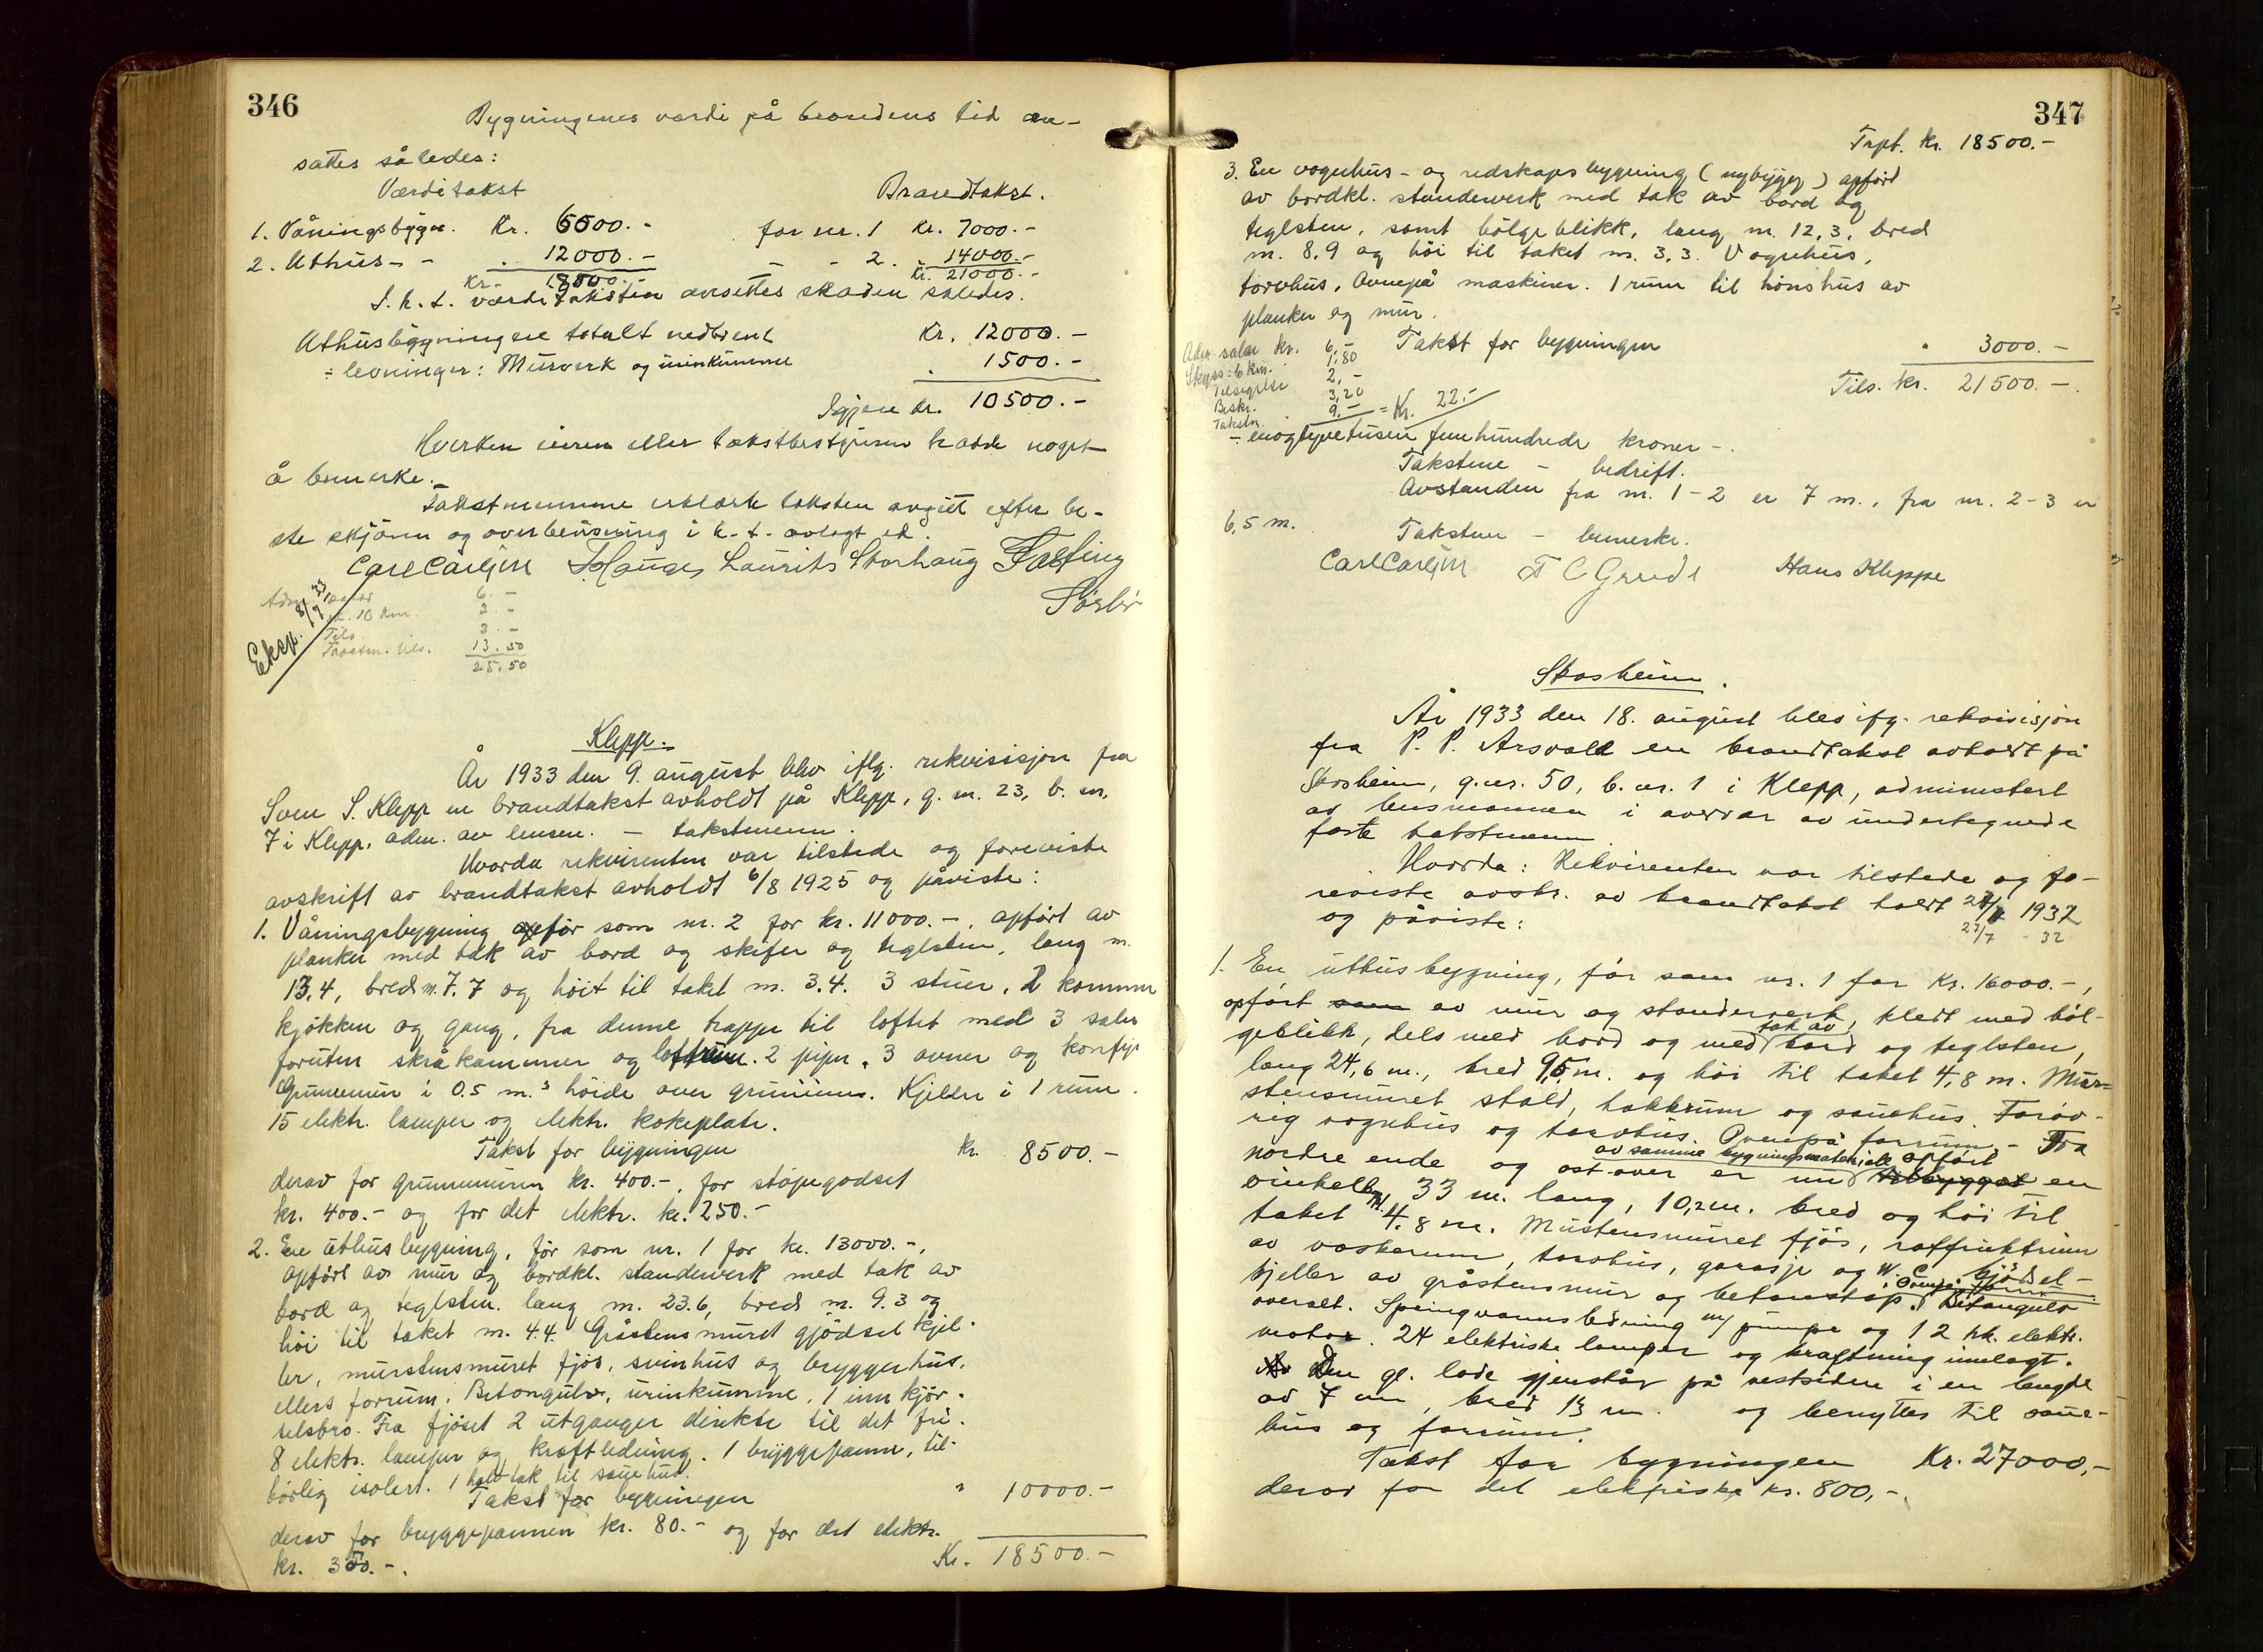 346
Bygningenes værdi på brandens tid an-
sattes således:
Værditakst Brandtakst.
1. Våningsbygn. Kr. 6500.- for nr. 1 Kr. 7000.-
2. Uthus - - . 12000.- - - 2. . 14000.-
Kr. 18500.- Kr. 21000.-
I h. t. værditaksten ansettes skaden således.
Uthusbygningen totalt nedbrent Kr. 12000.-
÷ levninger: Murverk og urinkumme . 1500.-
Igjen kr. 10500.-
Hverken eieren eller takstbestyrer hadde noget
å bemerke.
Takstmennene erklærte taksten avgitt efter be-
ste skjönn og overbevisning i h. t. avlagt ed.
Carl Carlsen Hauges Laurits Storhaug
Eksp. 8/9 33
Adm. 6.-
10 km 3.-
Tils. 3.-
Takstm. tils. 13.50
25.50
Klepp.
År 1933 den 9. august blev iflg. rekvisisjon fra
Sven S. Klepp en brandtakst avholdt på Klepp, g. nr. 23, b. nr.
7 i Klepp, adm. av lensm. - takstmenn.
Hvorda rekvirenten var tilstede og foreviste
avskrift av brandtakst avholdt 6/8 1925 og påviste:
1. Våningsbygning för som nr. 2 for kr. 11000.-, opført av
planker med tak av bord og skifer og teglsten, lang m.
13,4, bred m. 7.7 og höit til taket m. 3.4. 3 stuer, 2 kammer
kjökken og gang, fra denne trappe til loftet med 3 saler
foruten skråkammer og loftrum. 2 piper, 3 ovner og komfyr
Grunnmur i 0.5 m.s höide over grunnen. Kjelder i 1 rum.
15 elektr. lamper og elektr. kokeplate.
Takst for bygningen Kr. 8500.-
derav for grunnmuren kr. 400.-, for stöpegodset
kr. 400.- og for det elektr. kr. 250.-
2. En uthusbygning, för som nr. 1 for kr. 13000.-,
opfört av mur og bordkl. standerverk med tak av
bord og teglsten. lang m. 23.6, bred m. 9.3 og
höi til taket m. 4.4. Gråstensmuret gjödselkjel-
ler, murstensmuret fjös, svinhus og bryggerhus,
ellers forrum. Betongulv, urinkumme, 1 inn kjör-
selsbro. Fra fjöset 2 utganger direkte til det fri.
8 elektr. lamper og kraftledning. 1 bryggepanne, til-
börlig isolert. 1 halvtak til sauehus.
Takst for bygningen " 10000.-
derav for bryggepannen kr. 80.- og for det elektr.
kr. 350.-. Kr. 18500.-
347
Trpt. kr. 18500.-
3. En vognhus- og redskapsbygning (nybygg) opført
av bordkl. standerverk med tak av bord og
teglsten, samt bölgeblikk, lang m. 12,3, bred
m. 8,9 og höi til taket m. 3,3. Vognhus,
torvhus, ovenpå maskiner. 1 rum til hönshus av
planker og mur.
Takst for bygningen " 3000.-
Tils. kr. 21500.-
Adm. salær kr. 6,-
Skyss: 6 km. 1,80
Tilsigelse 2,-
Beskr. 3,20
Takstm. 9,- = Kr. 22.-
- enogtyvetusen femhundrede kroner -.
Takstene - bedrift.
Avstanden fra nr. 1-2 er 7 m., fra nr. 2-3 er
6,5 m.
Takstm. - bemerke.
Carl Carlsen T C Grude Hans Kleppe
Skasheim.
År 1933 den 18. august blev ifg. rekvisisjon
fra P. P. Arsvoll en brandtakst avholdt på
Skasheim, g.nr. 50, b.nr. 1 i Klepp, administert
av lensmannen i overvær av undertegnede
faste takstmenn.
Hvorda: Rekvirenten var tilstede og fo-
reviste avskr. av brandtakst holdt 27/7 1932
og påviste: 27/7 - 32
1. En uthusbygning, för som nr. 1 for Kr. 16000.-,
opfört som av mur og standerverk, kledt med böl-
geblikk, dels med bord og med tak av bord og teglsten,
lang 24,6 m., bred 9,5 m. og höi til taket 4,8 m. Mur-
stensmuret stald, hakkrum og sauehus. Foröv-
rig vognhus og torvhus. Ovenpå forrum. - Fra
nordre ende og ost-over er nu av samme bygningsmateriale opført tilbygget en
vinkelbyg. 33 m. lang, 10,2 m. bred og höi til
taket 4,8 m. Murstensmuret fjös, rotfruktrum
av vaskerum, torvhus, garasje og W. C. kjödsel-
kjeller av gråstensmur og betonstöp. ovenpå forrum. Betongulv
overalt. Springvannsledning m/ pumpe og 1 2 hk. elektr.
motor. 24 elektriske lamper og kraftning innlagt.
Den gl. lade gjenstår på vestsiden i en lengde
av 7 m, bred 13 m. og benyttes til saue-
hus og forrum.
Takst for bygningen Kr. 27000,-
derav for det elektriske kr. 800,-.